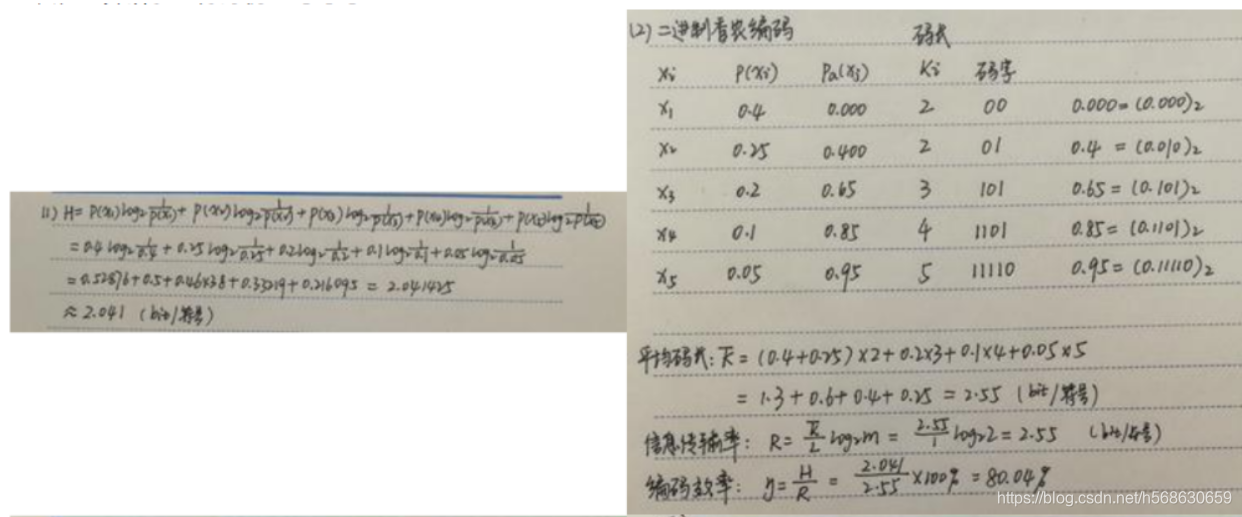 (1) H = P(x₁)log₂ 1/P(x₁) + P(x₂)log₂ 1/P(x₂) + P(x₃)log₂ 1/P(x₃) + P(x₄)log₂ 1/P(x₄) + P(x₅)log₂ 1/P(x₅)
= 0.4 log₂ 1/0.4 + 0.25 log₂ 1/0.25 + 0.2 log₂ 1/0.2 + 0.1 log₂ 1/0.1 + 0.05 log₂ 1/0.05
= 0.52876 + 0.5 + 0.46438 + 0.33219 + 0.216095 = 2.041425
≈ 2.041 (bit/符号)
(2) 二进制香农编码 码长
xᵢ P(xᵢ) Pa(xⱼ) Kᵢ 码字
x₁ 0.4 0.000 2 00 0.000 = (0.000)₂
x₂ 0.25 0.400 2 01 0.4 = (0.010)₂
x₃ 0.2 0.65 3 101 0.65 = (0.101)₂
x₄ 0.1 0.85 4 1101 0.85 = (0.1101)₂
x₅ 0.05 0.95 5 11110 0.95 = (0.11110)₂
平均码长: K̅ = (0.4+0.25)×2+0.2×3+0.1×4+0.05×5
= 1.3 + 0.6 + 0.4 + 0.25 = 2.55 (bit/符号)
信息传输率: R = K̅/L log₂m = 2.55/1 log₂2 = 2.55 (bit/符号)
编码效率: η = H/R = 2.041/2.55 ×100% = 80.04%
https://blog.csdn.net/h568630659